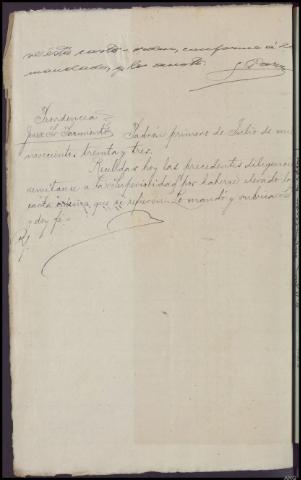 esta carta-orden, conforme a lo
mandado, y lo anoto
Providencia
Juez Sr. Sarmiento Padrón primero de Julio de mil
novecientos treinta y tres.
Recibidas hoy las precedentes diligencias
remítanse a la Superioridad por haberse elevado la
carta orden a que se refieren. Lo mandó y rubrica
y doy fe.